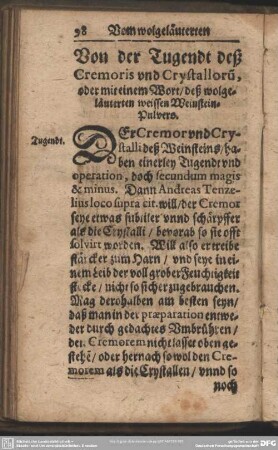 98 Vom wolgeläuterten
Von der Tugendt deß
Cremoris vnd Crystallorū,
oder mit einem Wort/ deß wolge-
läuterten weissen Weinstein-
Pulvers.
Tugendt.
DEr Cremor vnd Cry-
stalli deß Weinsteins/ ha-
ben einerley Tugendt vnd
operation, doch secundum magis
& minus. Dann Andreas Tenzæ-
lius loco supra cit. will/ der Cremor
seye etwas subtiler vnnd schärpffer
als die Crystalli/ bevorab so sie offt
solvirt worden. Will also er treibe
stärcker zum Harn/ vnd seye in ei-
nem Leib der voll grober Feuchtigkeit
stecke/ nicht so sicher zugebrauchen.
Mag derohalben am besten seyn/
daß man in der præparation entwe-
der durch gedachtes Vmbrühren/
den Cremorem nicht lasset oben ge-
stehē/ oder hernach so wol den Cre-
morem als die Crystallen/ vnnd so
noch